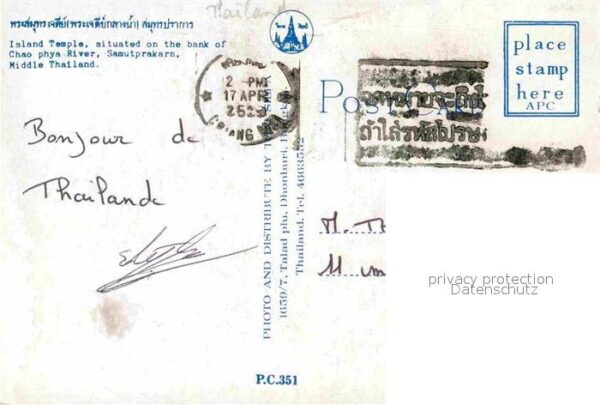 Thailand
พระสมุทรเจดีย์(พระเจดีย์กลางน้ำ) สมุทรปราการ
Island Temple, situated on the bank of
Chao phya River, Samutprakarn,
Middle Thailand.
2 PM
17 APR
CHIANG MAI
POST CARD
place
stamp
here
APC
Bonjour de
Thailande
PHOTO AND DISTRIBUTE BY
1659/7, Talad plu, Dhonburi,
Thailand, Tel. 4663552
M.
privacy protection
Datenschutz
P.C.351